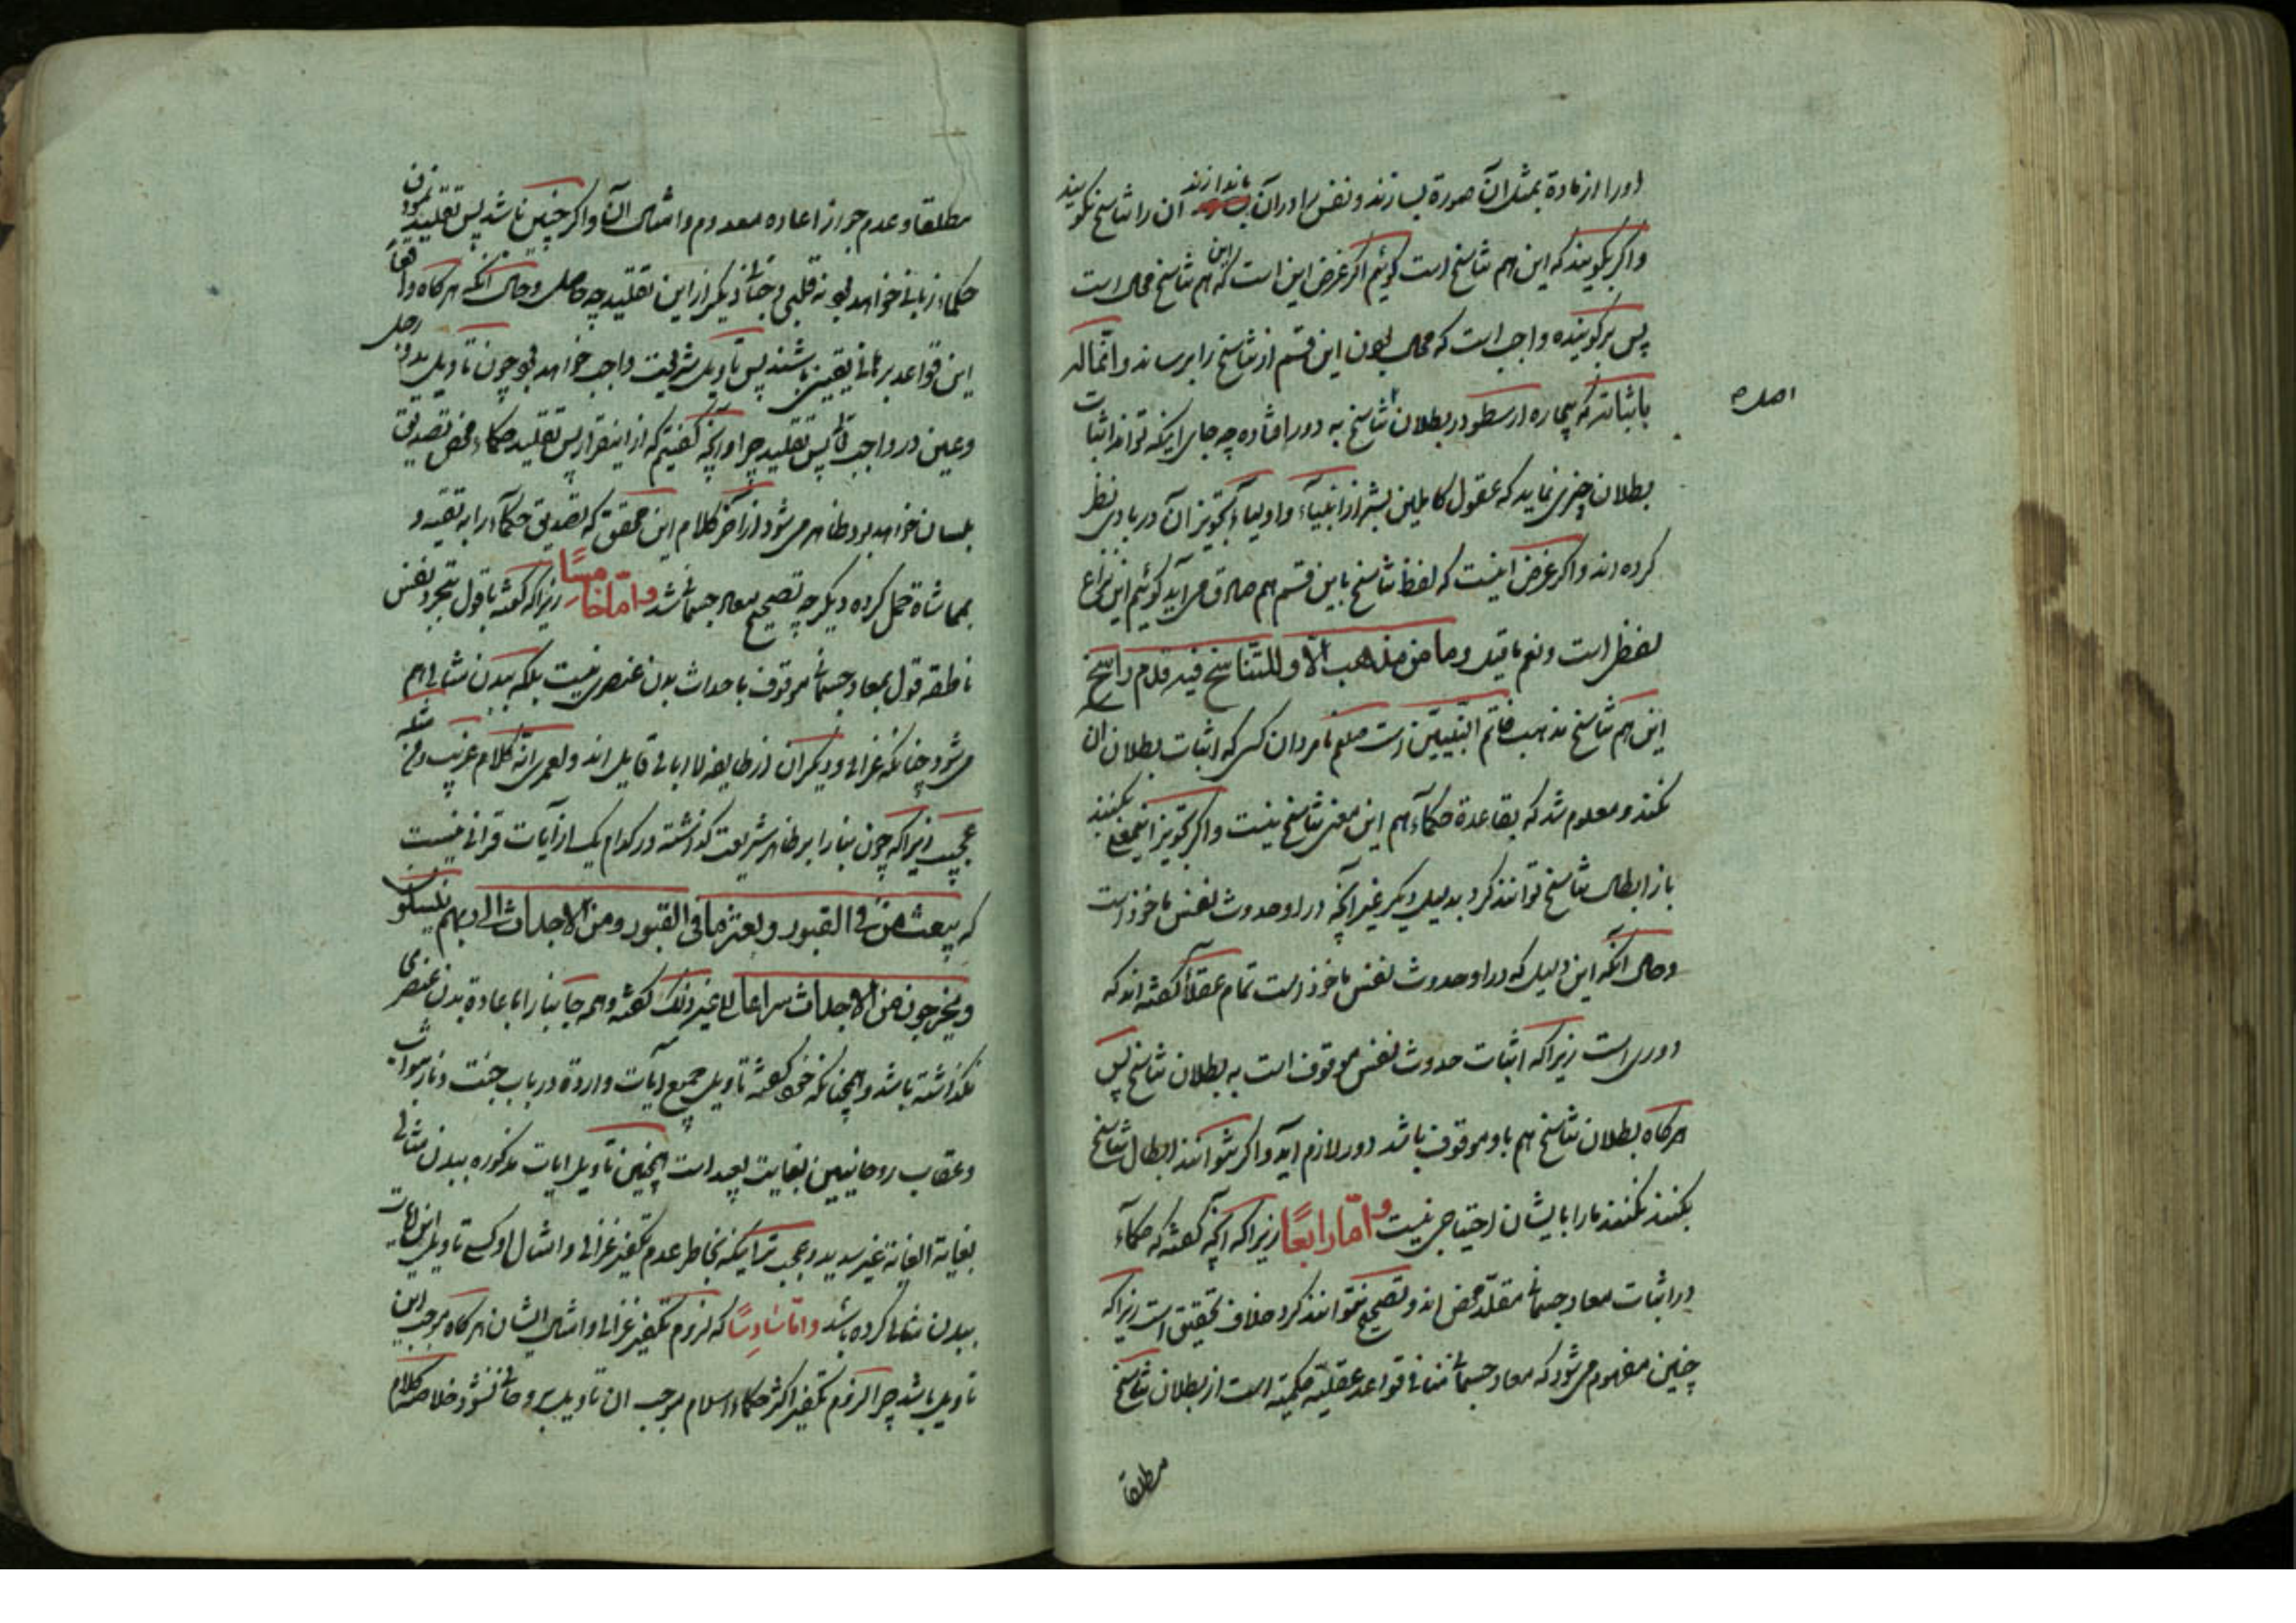 دورا از ماده بمثل آن صورة بسازند و نفس را در آن باندازند آن را تناسخ نگویند
و اگر بگویند که این هم تناسخ است گوئیم اگر غرض این است که این هم تناسخ محال است
پس بر گوینده واجب است که محال بودن این قسم از تناسخ را برساند و انّما له
باثباته که بیچاره ارسطو در بطلان تناسخ به دور افتاده چه جای اینکه تواند اثبات
اصل ه
بطلان چیزی نماید که عقول کاملین بشر از انبیآء و اولیآء تجویز آن در بادی نظر
کرده اند و اگر غرض اینست که لفظ تناسخ باین قسم هم صادق می آید گوئیم این نزاع
لفظی است و نعم ما قیل و ما من مذهب الّا و للتناسخ فیه قدم راسخ
این هم تناسخ مذهب خاتم النّبییّن است صلعم نامردان کسی که اثبات بطلان آن
نکند و معلوم شد که بقاعدة حکمآء هم این معنی تناسخ نیست و اگر تجویز اینمعنی بکنند
باز ابطال تناسخ توانند کرد بدلیل دیگر غیر آنچه در او حدوث نفس ماخوذ است
و حال آنکه این دلیل که در او حدوث نفس ماخوذ است تمام عقلآ گفته اند که
دوری است زیرا که اثبات حدوث نفس موقوف است به بطلان تناسخ پس
هرکاه بطلان تناسخ هم باو موقوف باشد دور لازم آید و اگر نتوانند ابطال تناسخ
بکنند نکنند ما را بایشان احتیاجی نیست و امّا رابعًا زیرا که آنچه گفته که حکمآء
در اثبات معاد جسمانی مقلّد محض اند و تصحیح نتوانند کرد خلاف تحقیق است زیرا که
چنین مفهوم می شود که معاد جسمانی منافی قواعد عقلیّه حکمیّه است از بطلان تناسخ
مطلقا
مطلقا و عدم جواز اعاده معدوم و امثال آن و اگر چنین باشد پس تقلید نمودن
حکماء زبانی خواهد بود نه قلبی و جنانی دیگر از این تقلید چه حاصل و حال آنکه هرگاه واقعاً
این قواعد برهانی یقینی باشند پس تاویل شریعت واجب خواهد بود چون تاویل ید و رجل
و عین در واجب تعالی پس تقلید چرا و آنچه گفتیم که از اینقرار پس تقلید حکماء محض تصدیق
بلسان خواهد بود ظاهر می شود از آخر کلام این محقق که تصدیق حکمآء را به تقیه و
بمماشاة حمل کرده دیگر چه تصحیح معاد جسمانی شد و امّا خامسًا زیرا که گفته با قول بتجرد نفس
ناطقه قول بمعاد جسمانی موقوف باحداث بدن عنصری نیست بلکه ببدن مثالی هم
می شود چنانکه غزالی و دیگران از طایفه لاابالی قایل اند و لعمری انّه کلام غریب و من مثله
عجیب زیرا که چون بنا را بر ظاهر شریعت گذاشته در کدام یک از آیات قرانی نیست
که یبعث من فی القبور و بعثر ما فی القبور و من الاجداث الی ربهم ینسلون
و یخرجون من الاجداث سراعا الی غیر ذلک گفته و همه جا بنا را باعادة بدن عنصری
نگذاشته باشد و همچنانکه خود گفته تاویل جمیع آیات واردة در باب جنت و نار بثواب
و عقاب روحانیین بغایت بعید است همچنین تاویل ایات مذکوره ببدن مثالی
بغایة الغایة غیر سدید و عجب تر اینکه بخاطر عدم تکفیر غزالی و امثال او کسی تاویل این ایات
ببدن مثالی کرده باشد و امّا سادسًا که لزوم تکفیر غزالی و امثال ایشان هرگاه موجب این
تاویل باشد چرا لزوم تکفیر اکثر حکماء اسلام موجب ان تاویل بروحانی نشود خلاصه کلام